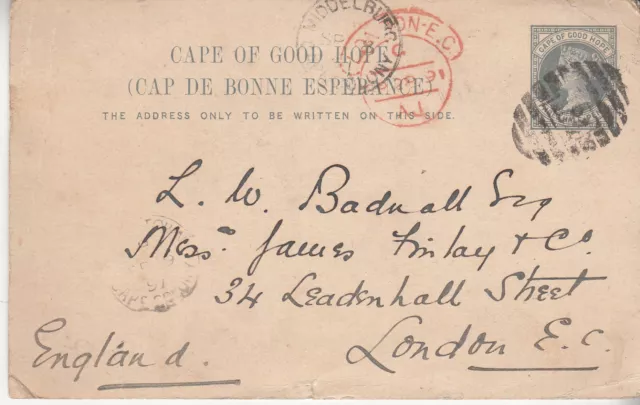 MIDDELBURG
LONDON-E.C
CAPE OF GOOD HOPE
CAPE OF GOOD HOPE
(CAP DE BONNE ESPERANCE)
THE ADDRESS ONLY TO BE WRITTEN ON THIS SIDE.
L. W. Badnall Esq
Messrs. James Finlay & Co
34 Leadenhall Street
London E.C.
England.